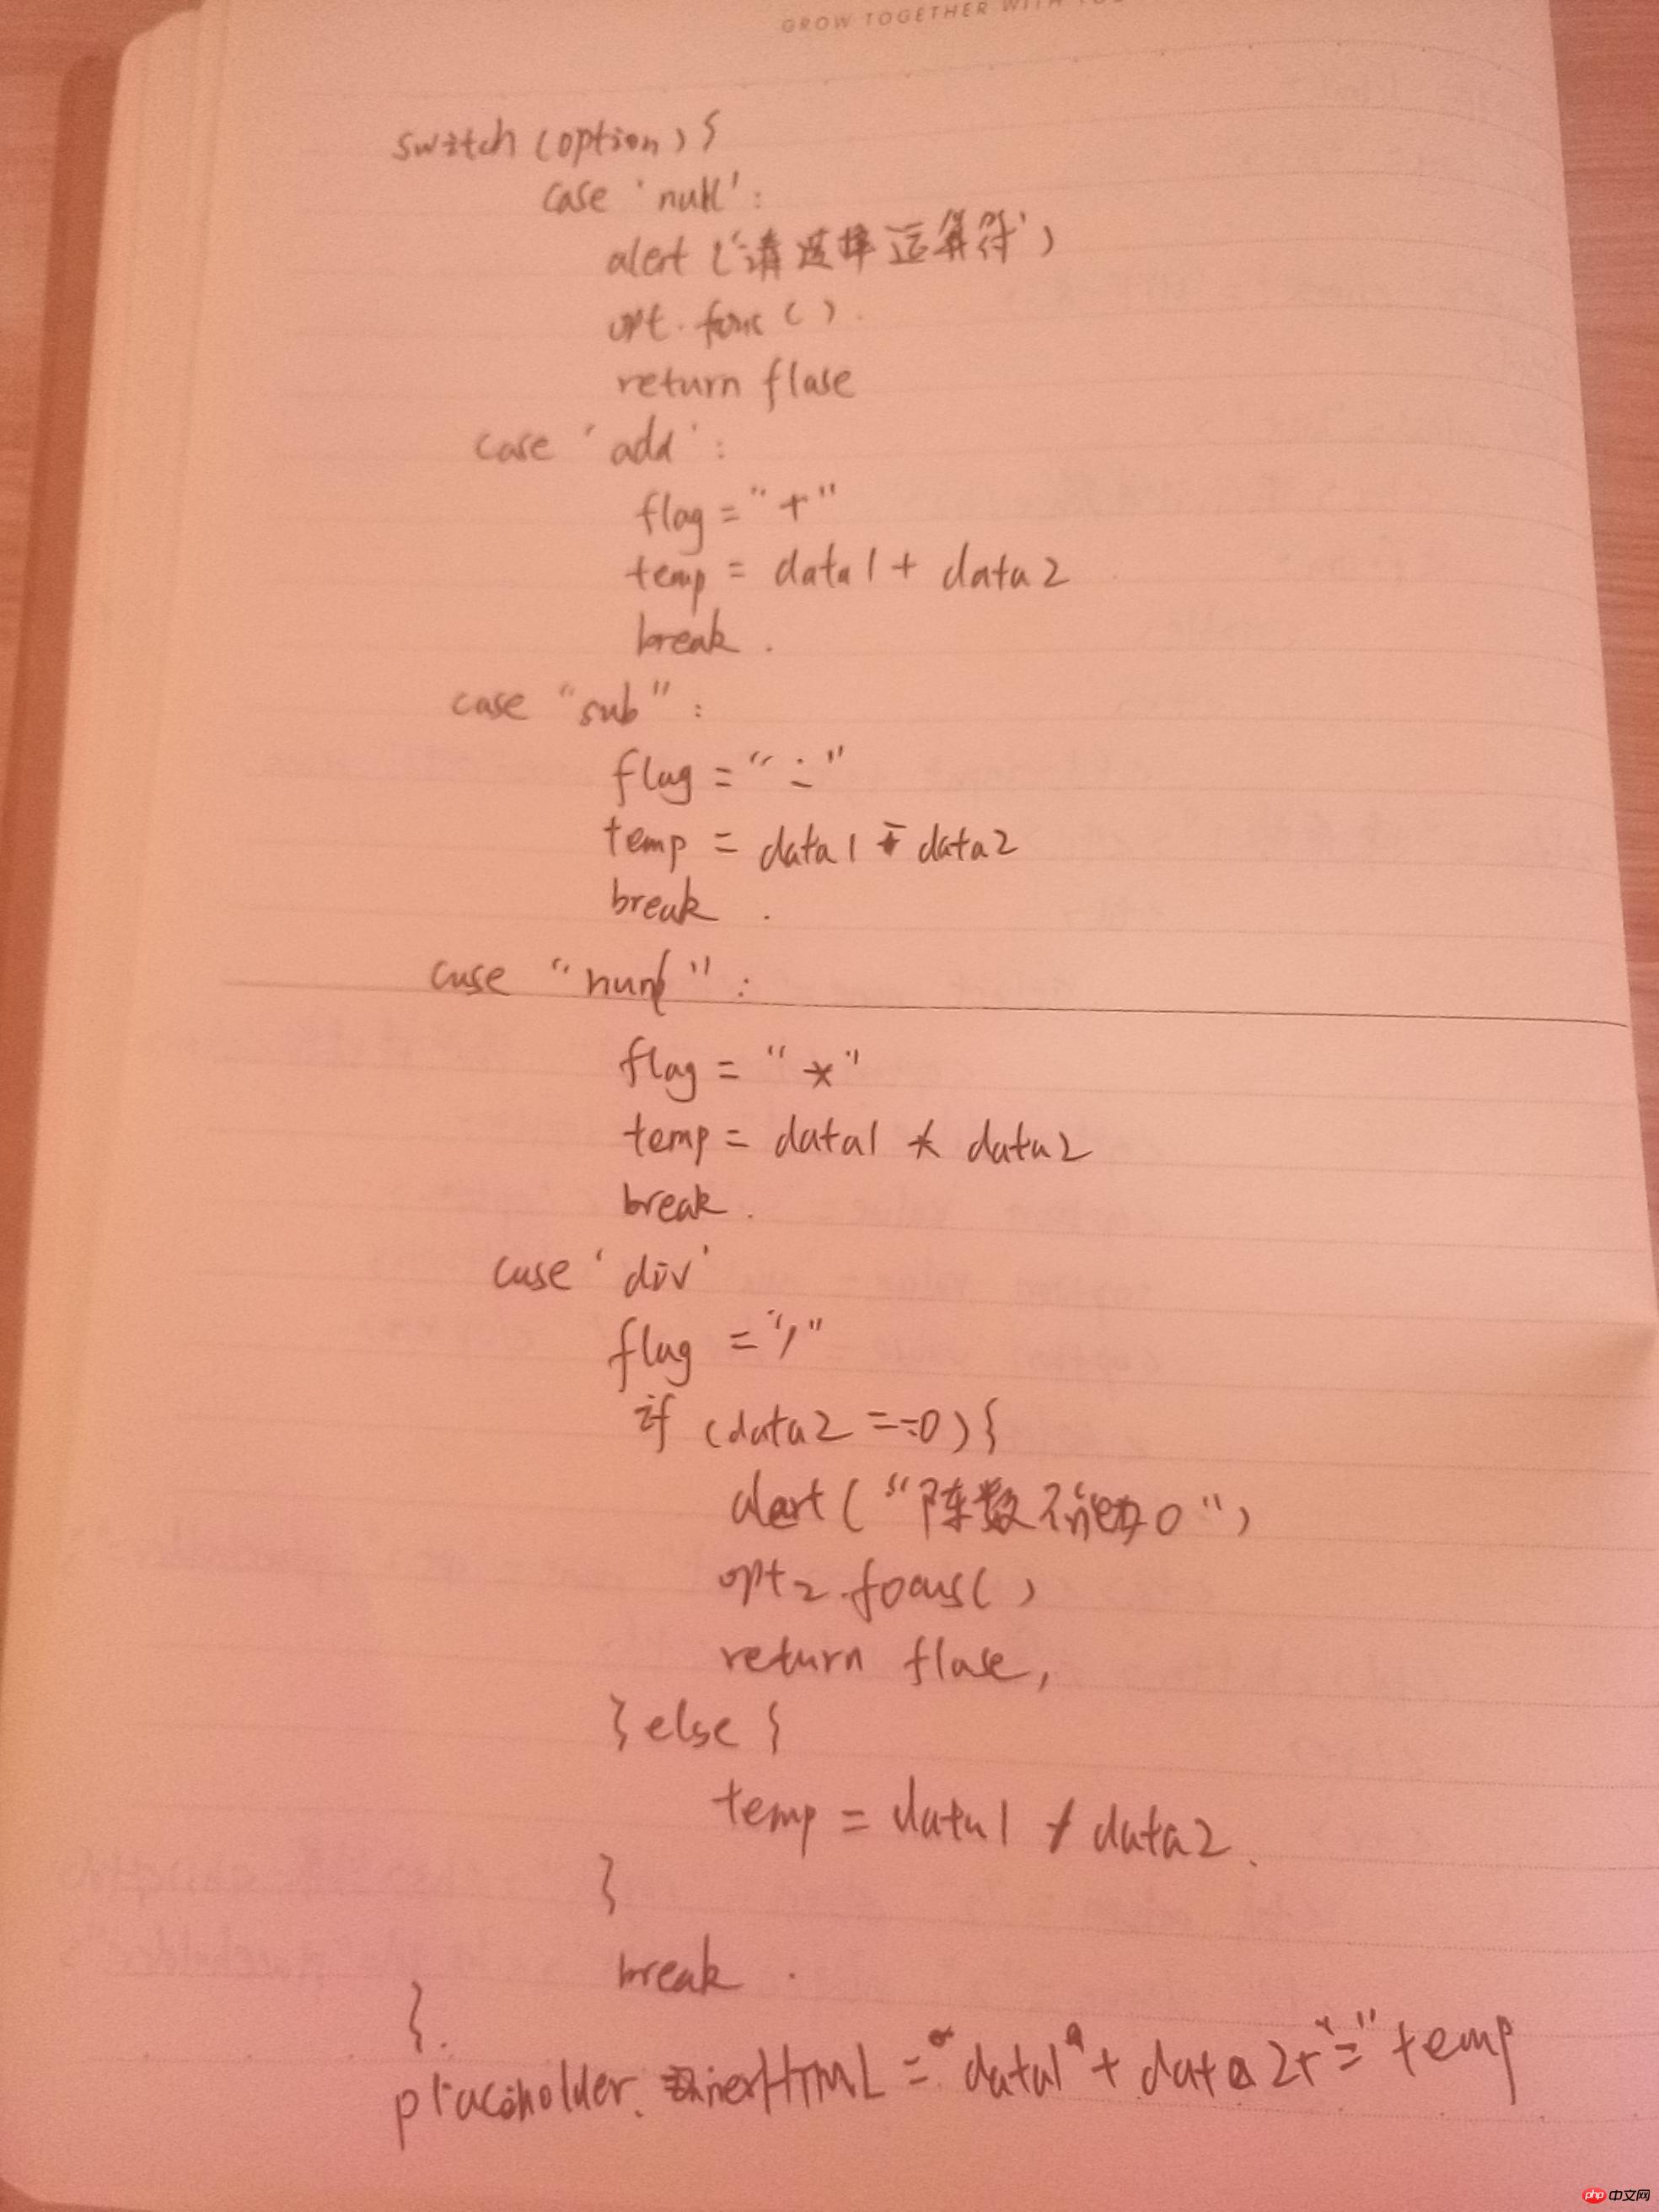 GROW TOGETHER WITH YOU
switch (option) {
case 'null':
alert ('请选择运算符')
opt. func ( ).
return flase
case 'add':
flag = "+"
temp = data1 + data2
break.
case "sub":
flag = "-"
temp = data1 - data2
break.
case "":
flag = "*"
temp = data1 * data2
break.
case 'div'
flag = "/"
if (data2 === 0) {
alert ( "除数不能为0 ")
opt2.focus( )
return flase,
} else {
temp = data1 / data2.
}
break.
}.
placeholder. innerHTML = "data1" + data2 + "=" temp
php 中文网